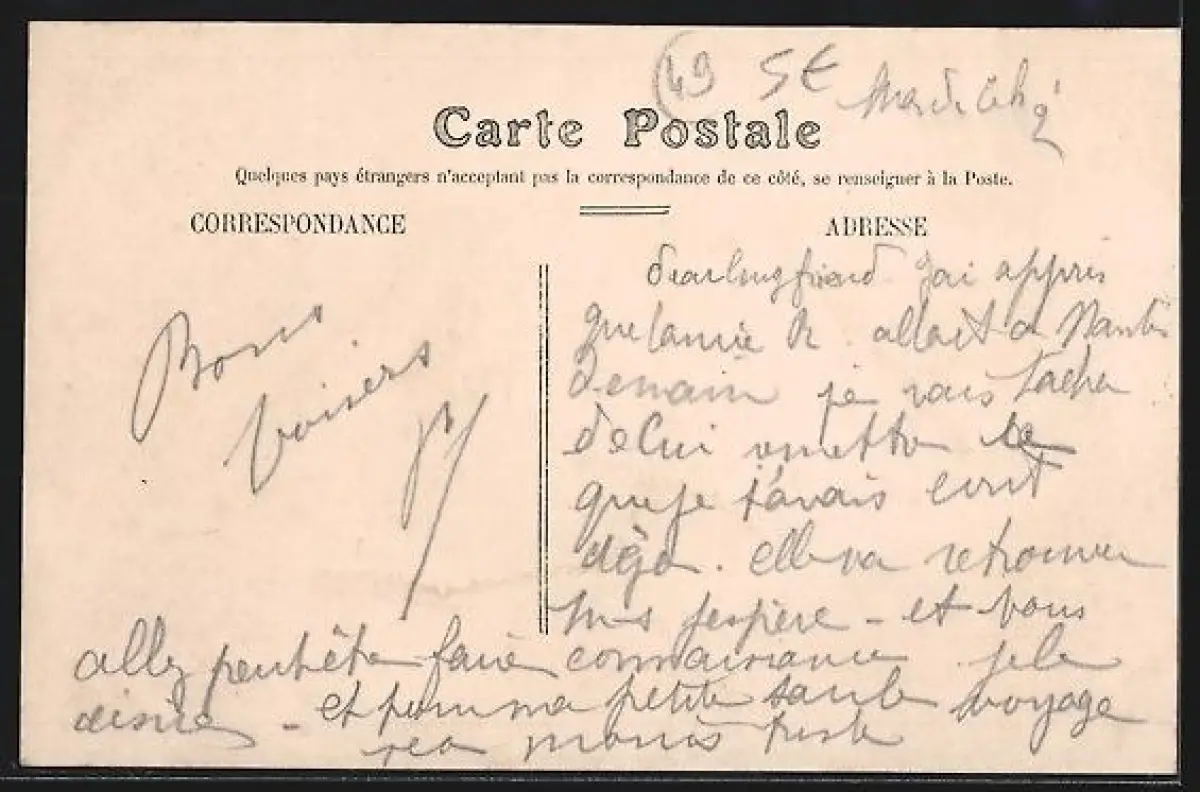 49 5€
Carte Postale
Quelques pays étrangers n'acceptant pas la correspondance de ce côté, se renseigner à la Poste.
CORRESPONDANCE
ADRESSE
Bons
baisers
darling friend. J'ai appris
que lamie R. allait a Nantes
demain je vais tacher
de lui remettre le
que je t'avais ecrit
déja. elle va retrouver
j'espère - et vous
allez peut être faire connaissance je le
désire - et pour ma petite tante voyage
sera moins triste